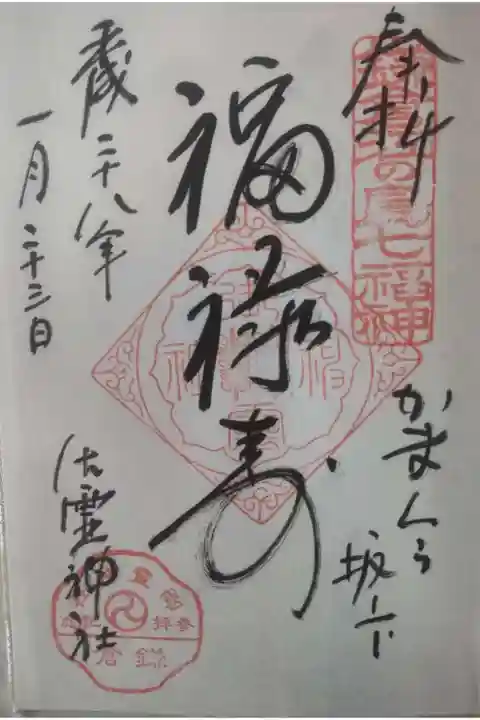 奉拝
鎌倉江の島七福神
かまくら
坂ノ下
福禄寿
歳二十八年
一月二十三日
御霊神社
鎌倉